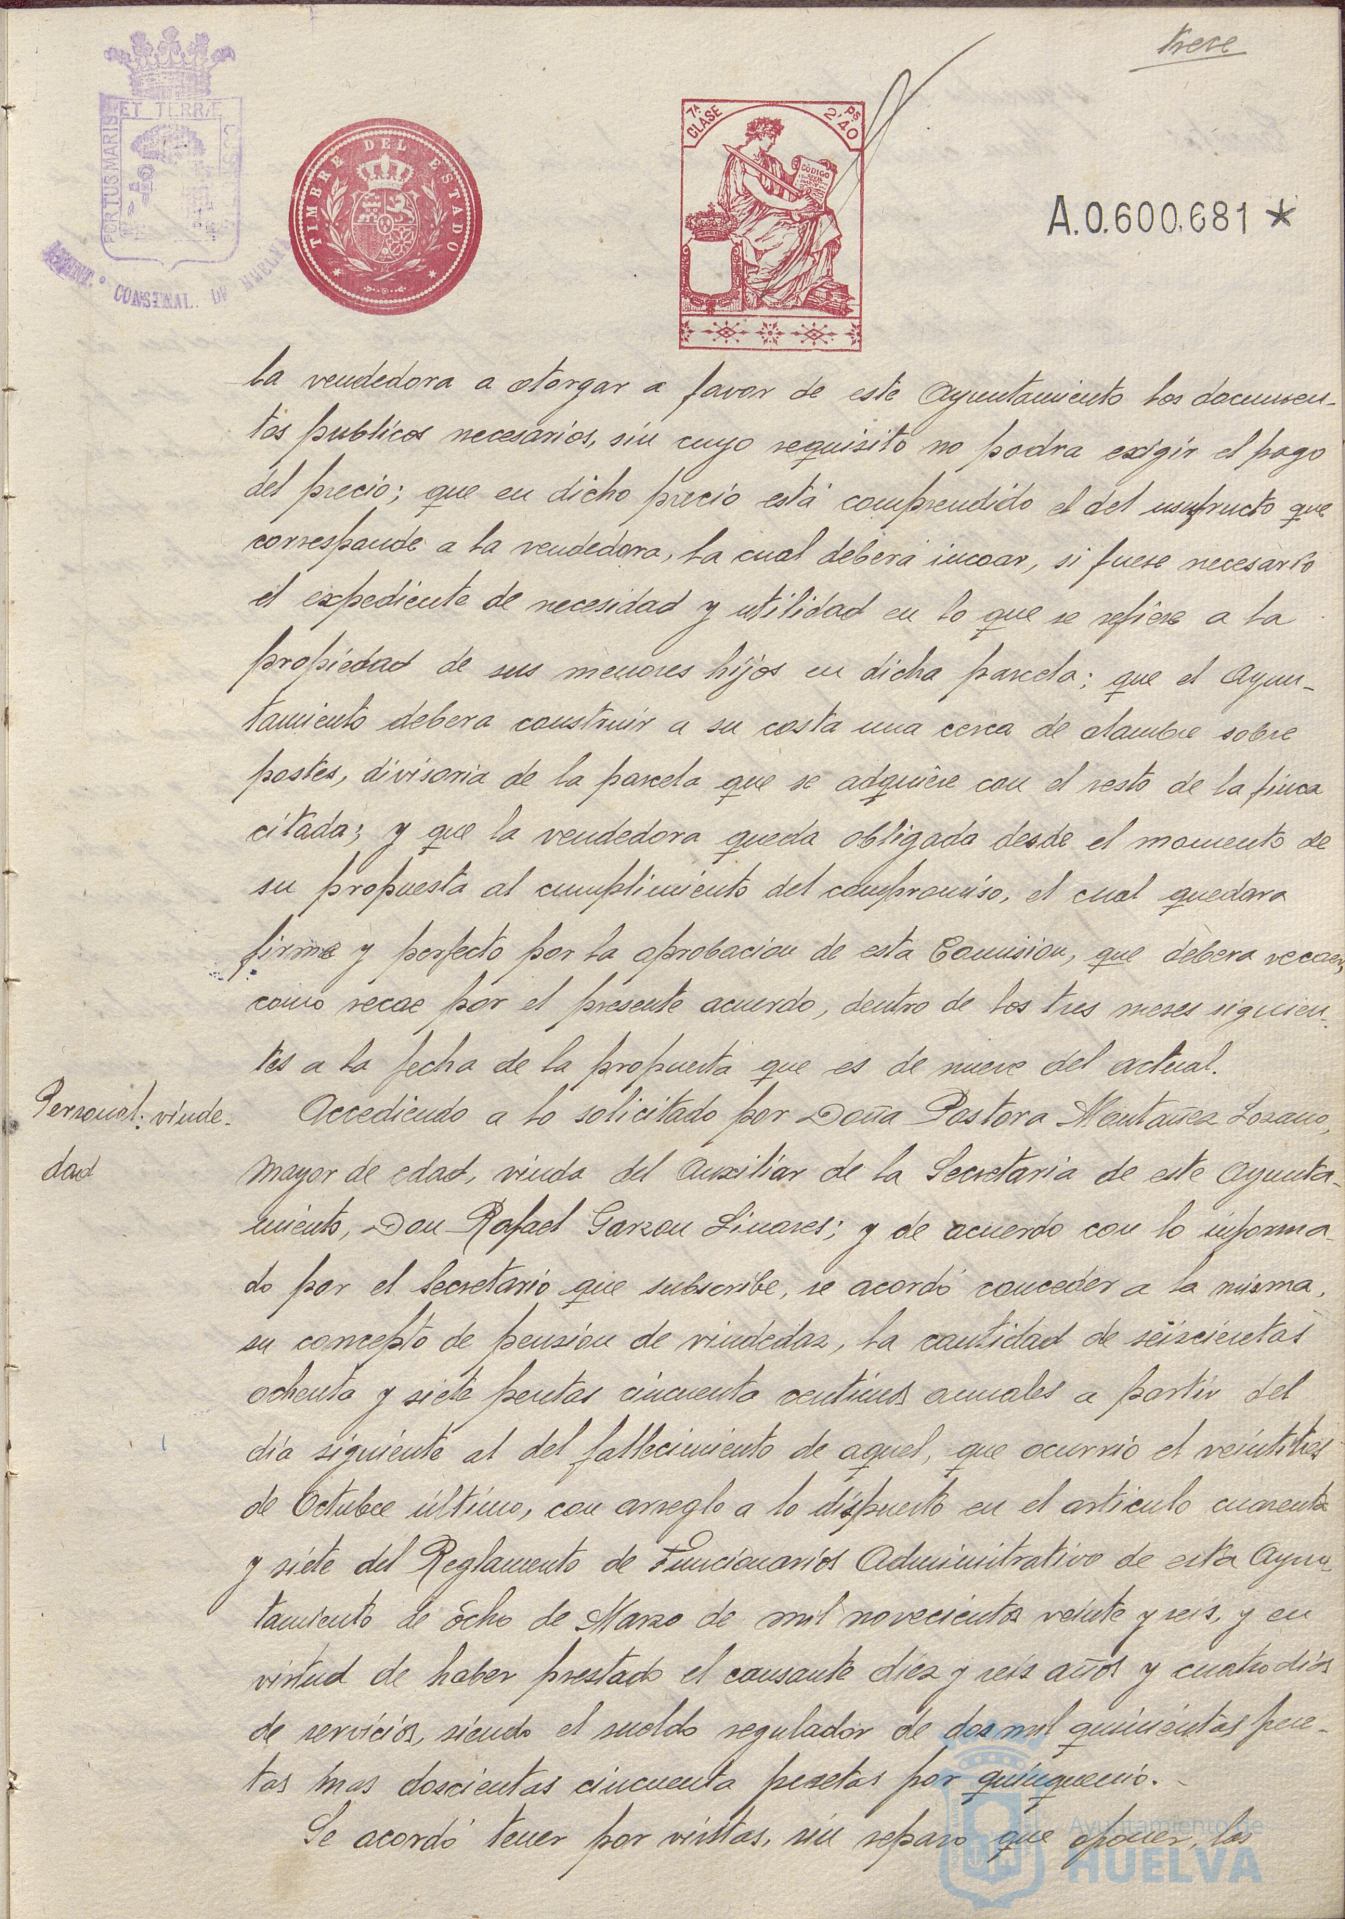 trece
PORTUS MARIS
ET TERRÆ
CUSTODIA
AYUNT.º CONSTNAL. DE HUELVA
TIMBRE DEL ESTADO
7ª CLASE
PS 2'40
CODIGO
A.0.600.681 *
la vendedora a otorgar a favor de este Ayuntamiento los documen-
tos publicos necesarios, sin cuyo requisito no podra exigir el pago
del precio; que en dicho precio está comprendido el del usufructo que
corresponde a la vendedora, la cual deberá incoar, si fuese necesario
el expediente de necesidad y utilidad en lo que se refiere a la
propiedad de sus menores hijos en dicha parcela; que el Ayun-
tamiento debera construir a su costa una cerca de alambre sobre
postes, divisoria de la parcela que se adquiere con el resto de la finca
citada; y que la vendedora queda obligada desde el momento de
su propuesta al cumplimiento del compromiso, el cual quedara
firme y perfecto por la aprobacion de esta Comision, que debera recaer,
como recae por el presente acuerdo, dentro de los tres meses siguien-
tes a la fecha de la propuesta que es de nueve del actual.
Personal: viude-
dad
Accediendo a lo solicitado por Doña Pastora Montañez Lozano,
mayor de edad, viuda del Auxiliar de la Secretaria de este Ayunta-
miento, Don Rafael Garzon Linares; y de acuerdo con lo informa-
do por el Secretario que subscribe, se acordó conceder a la misma,
en concepto de pensión de viudedaz, la cantidad de seiscientas
ochenta y siete pesetas cincuenta centimos anuales a partir del
día siguiente al del fallecimiento de aquel, que ocurrió el veintitres
de Octubre último, con arreglo a lo dispuesto en el articulo cuarenta
y siete del Reglamento de Funcionarios Administrativo de esta Ayun-
tamiento de ocho de Marzo de mil novecientos veinte y seis, y en
virtud de haber prestado el causante diez y seis años y cuatro dias
de servicios, siendo el sueldo regulador de dos mil quinientas pese-
tas mas doscientas cincuenta pesetas por quinquenio.-
Se acordó tener por vistas, sin reparo que oponer, las
Ayuntamiento de
HUELVA